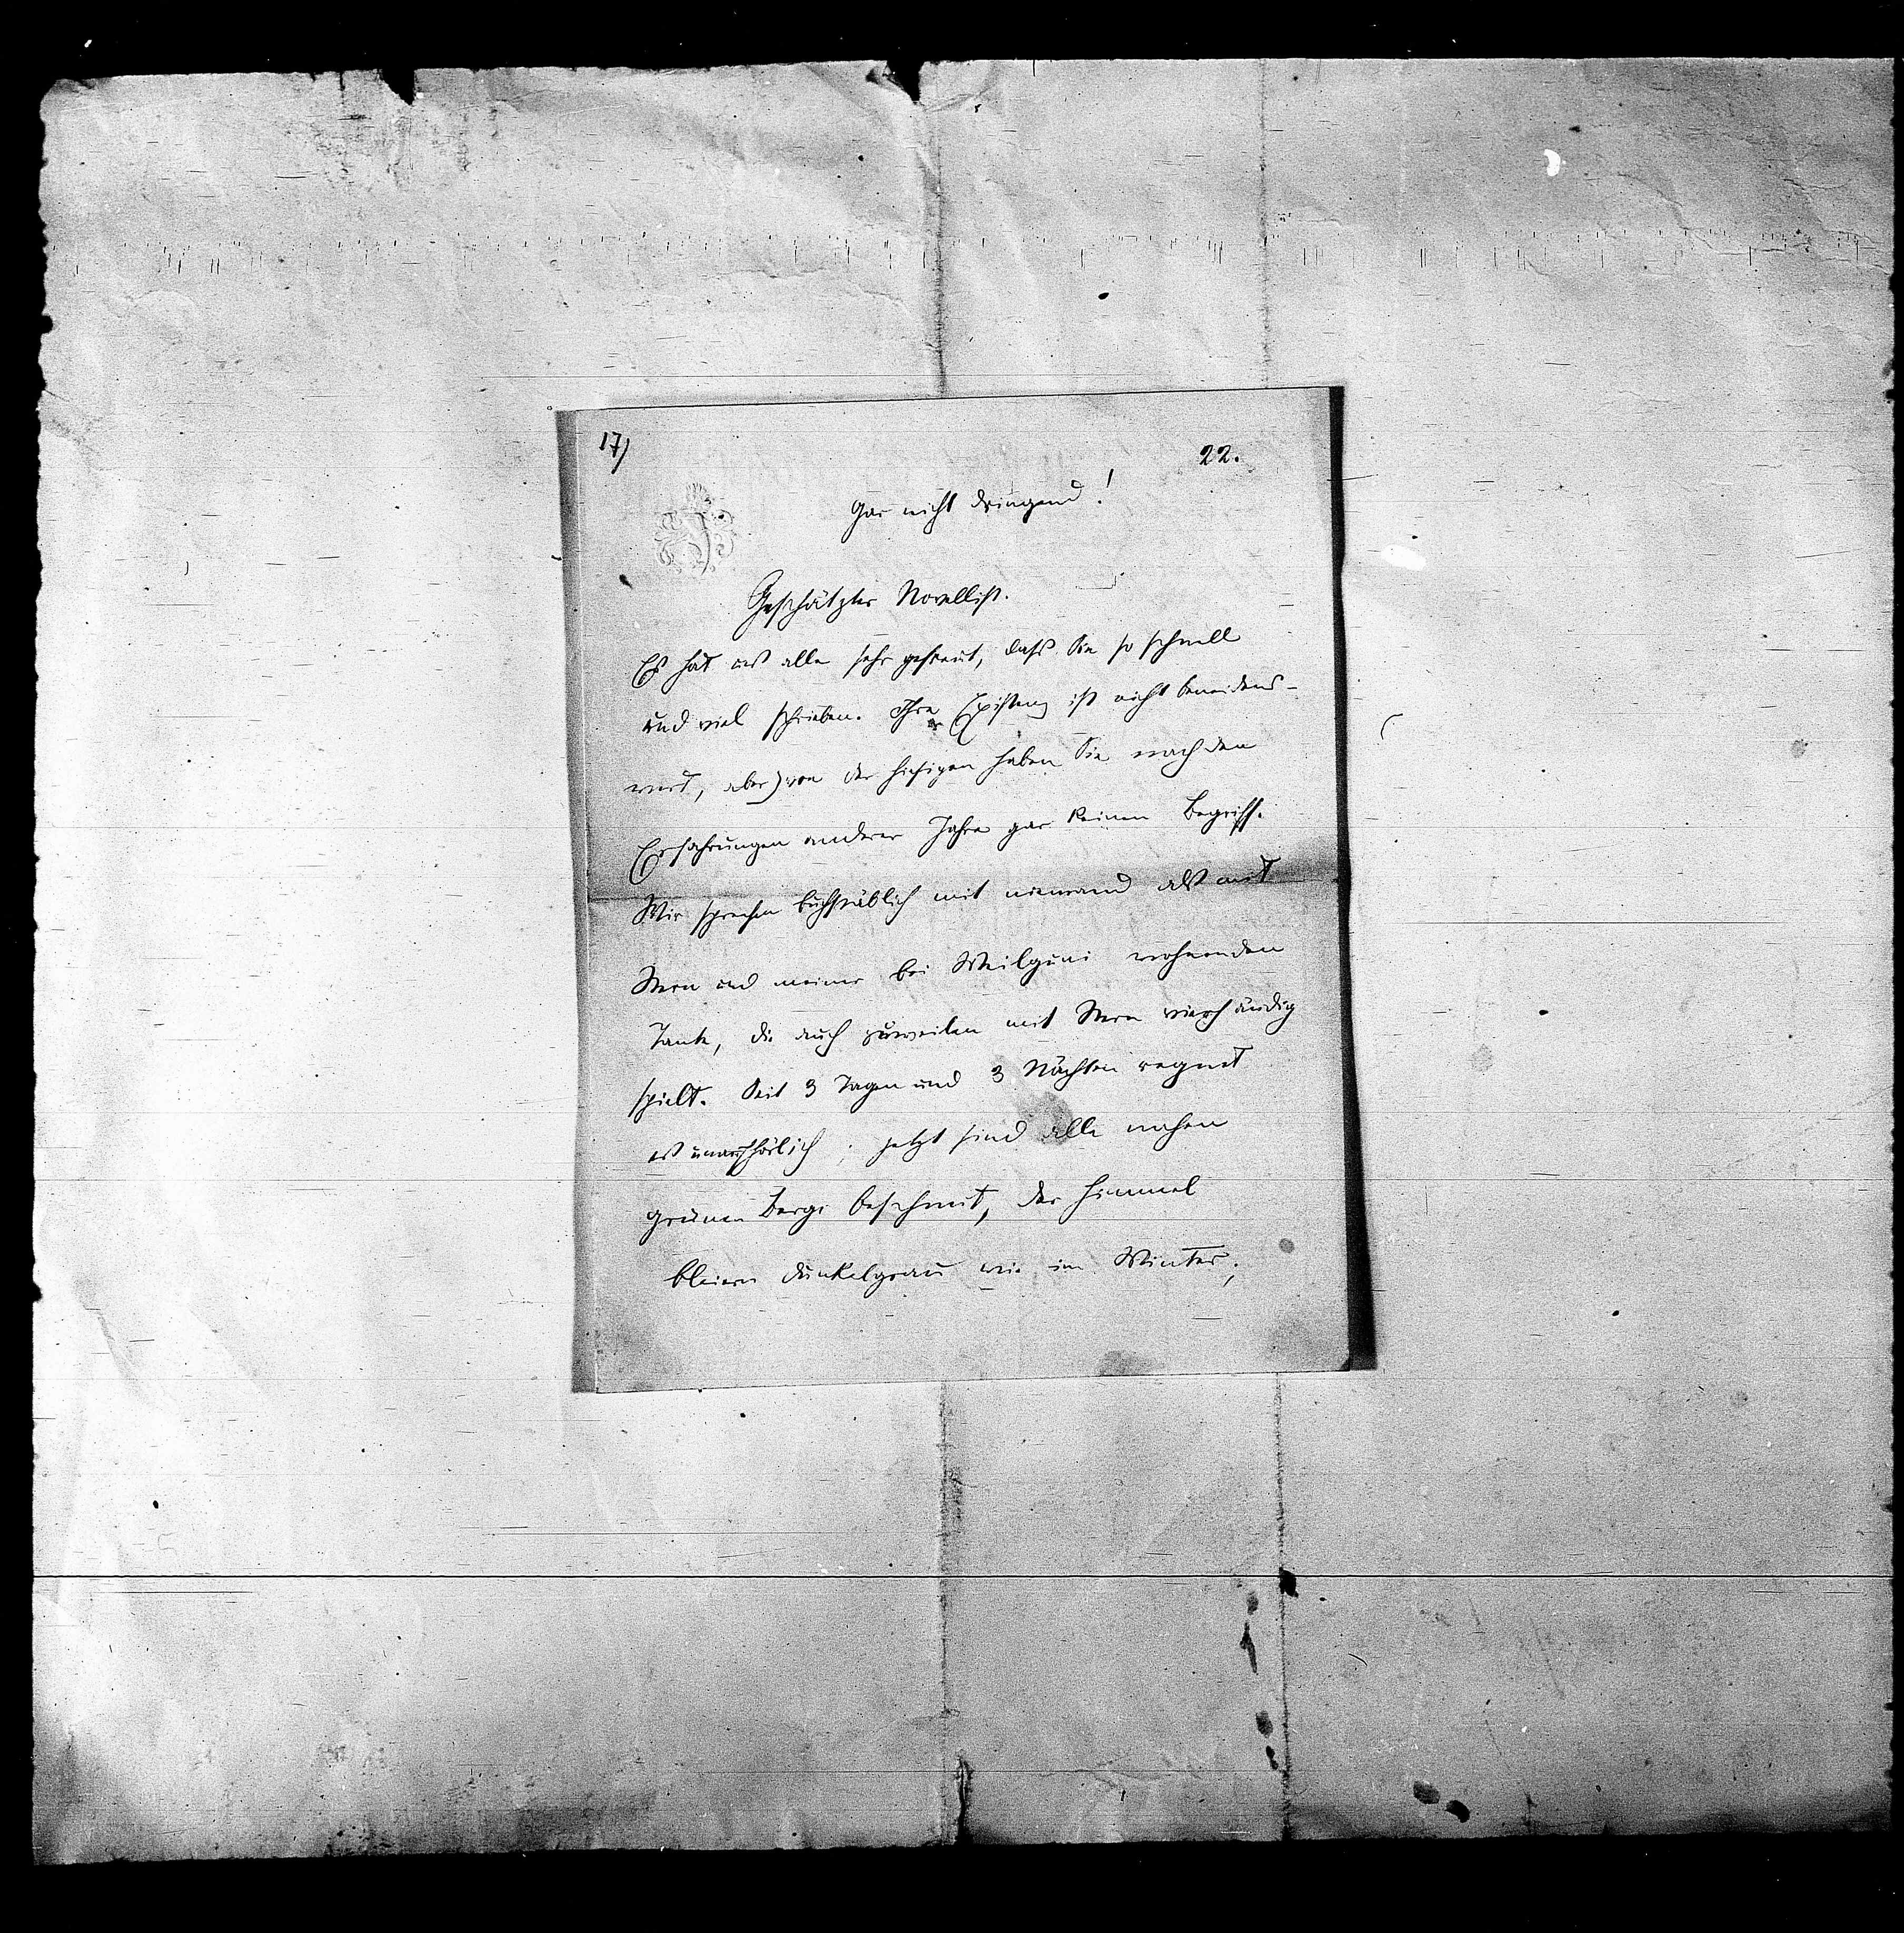 17)
22.
Gar nicht dringend!
Geschätzter Novellist.
Es hat uns alle sehr gefreut, dass Sie so schnell
und viel schrieben. Ihre Existenz ist nicht beneidens-
wert, aber von der hiesigen haben Sie nach den
Erfahrungen anderer Jahre gar keinen Begriff.
Wir sprechen buchstäblich mit niemand als mit
und meiner bei Weilguni wohnenden
Tante, die auch zuweilen mit vierhändig
spielt. Seit 3 Tagen und 3 Nächten regnet
es unaufhörlich; jetzt sind alle nahen
grünen Berge beschneit, der Himmel
bleiern dunkelgrau wie im Winter;